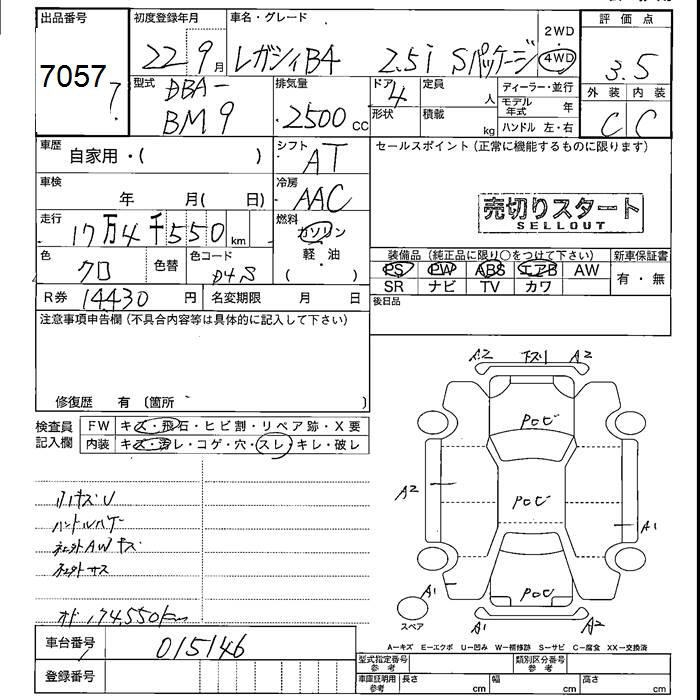 出品番号 初度登録年月 車名・グレード 2WD 評価点
7057 22 9月 レガシィB4 2.5i Sパッケージ 4WD 3.5
型式 排気量 ドア 定員 ディーラー・並行 外装 内装
DBA- 4 人 モデル年式 年
BM9 2500cc 形状 積載 kg ハンドル 左・右 C C
車歴 自家用・( ) シフト AT セールスポイント(正常に機能するものに限ります)
車検 年 月( 日) 冷房 AAC
売切りスタート
SELLOUT
走行 17万4千550km 燃料 ガソリン
軽・油
( )
色 クロ 色替 色コード D4S
装備品(純正品に限り○をつけて下さい) 新車保証書
PS PW ABS エアB AW 有・無
SR ナビ TV カワ
R券 14430円 名変期限 月 日 後日品
注意事項申告欄(不具合内容等は具体的に記入して下さい)
修復歴 有(箇所 )
検査員記入欄 FW キズ・飛石・ヒビ割・リペア跡・X要
内装 キズ・汚レ・コゲ・穴・スレ・キレ・破レ
A2 下スリ A2
PCU
A2
PCU
A1
PCU
A1
A1 A2
スペア
ハンドルハゲ
オド 174,550km
A−キズ E−エクボ U−凹み W−補修跡 S−サビ C−腐食 XX−交換済
車台番号 015146
型式指定番号 参考 類別区分番号 参考
登録番号
車庫証明用 参考 長さ cm 幅 cm 高さ cm